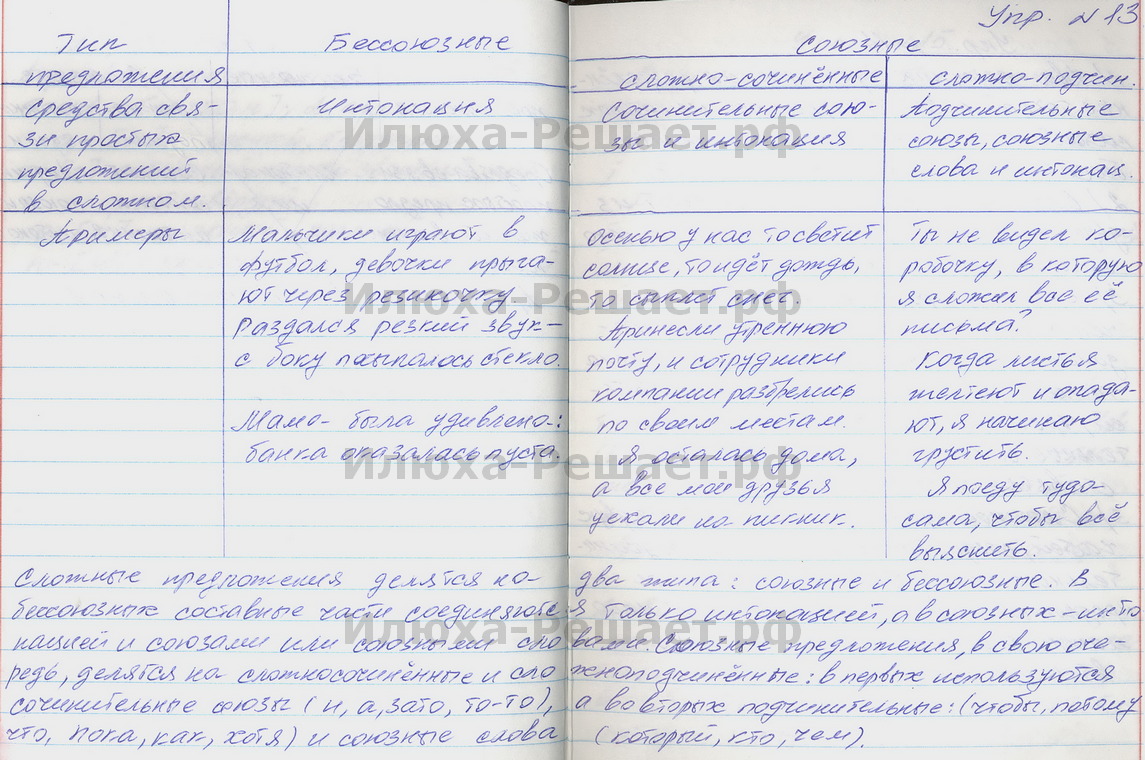 Упр. №13
Тип Бессоюзные Союзные
предложения сложно-сочинённые сложно-подчин.
средства свя- Интонация Сочинительные сою- Подчинительные
зи простых зы и интонация союзы, союзные
предложений слова и интонац.
в сложном.
Примеры Мальчики играют в Осенью у нас то светит Ты не видел ко-
футбол, девочки прыга- солнце, то идёт дождь, робочку, в которую
ют через резиночку. то сыплет снег. я сложил все её
Раздался резкий звук – Принесли утреннюю письма?
с боку посыпалось стекло. почту, и сотрудники Когда листья
компании разбрелись желтеют и опада-
Мама- была удивлена-: по своим местам. ют, я начинаю
банка оказалась пуста. Я осталась дома, грустить.
а все мои друзья Я поеду туда
уехали на пикник. сама, чтобы всё
выяснить.
Сложные предложения делятся на два типа: союзные и бессоюзные. В
бессоюзных составные части соединяются только интонацией, а в союзных – инто
нацией и союзами или союзными сло вами. Союзные предложения, в свою оче-
редь, делятся на сложносочинённые и сло жноподчинённые: в первых используются
сочинительные союзы (и, а, зато, то-то), а во вторых подчинительные: (чтобы, потому
что, пока, как, хотя) и союзные слова (который, кто, чем).
Илюха-Решает.рф
Илюха-Решает.рф
Илюха-Решает.рф
Илюха-Решает.рф